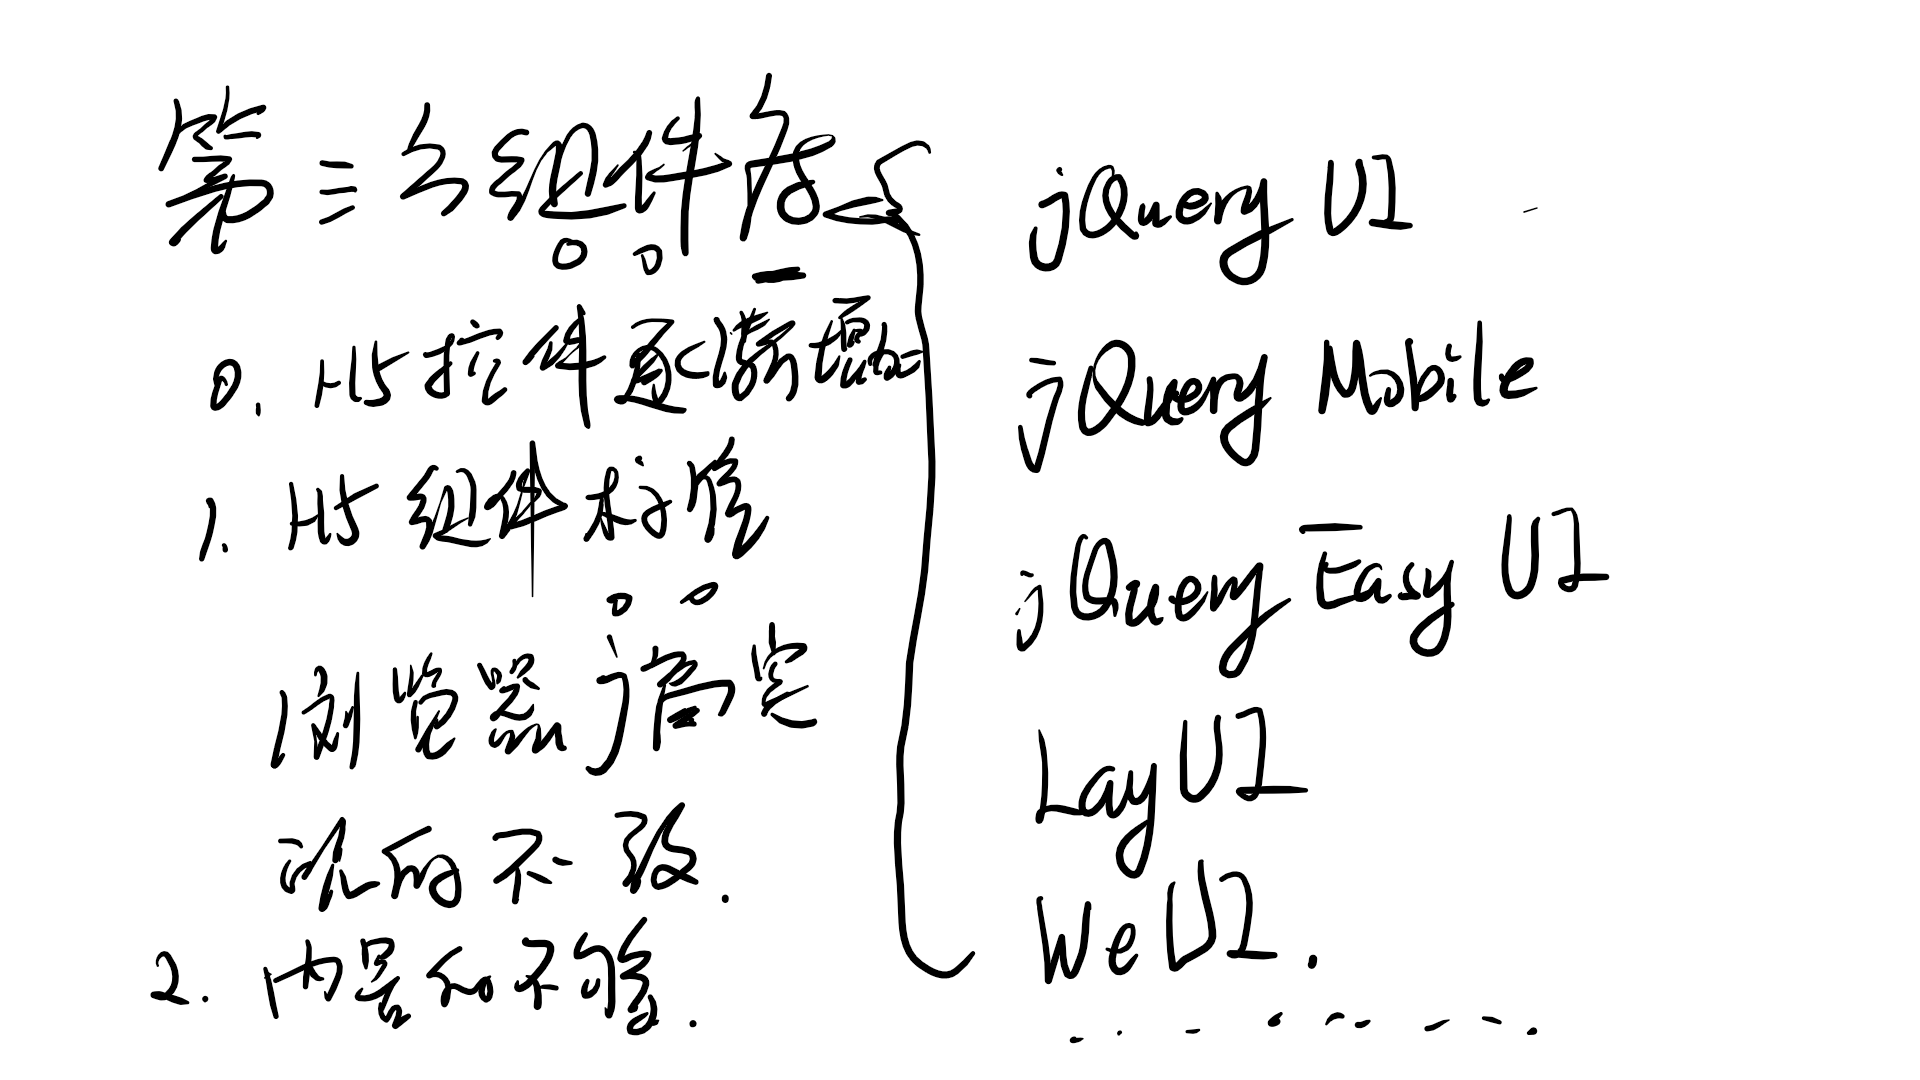 第三方组件库
0. H5控件逐渐增加
1. H5组件标准
浏览器厂商实
现的不一致.
2. 内容和不够.
jQuery UI
jQuery Mobile
jQuery Easy UI
Lay UI
We UI.